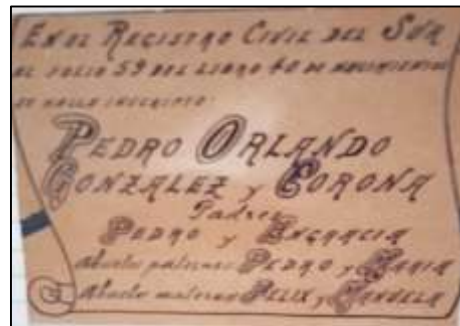 EN EL REGISTRO CIVIL DEL SUR
AL FOLIO 59 DEL LIBRO 60 DE NACIMIENTOS
SE HALLA INSCRIPTO:
PEDRO ORLANDO
GONZALEZ y CORONA
Padres
PEDRO y ENGRACIA
Abuelos paternos PEDRO y MARIA
Abuelos maternos FELIX y MANUELA